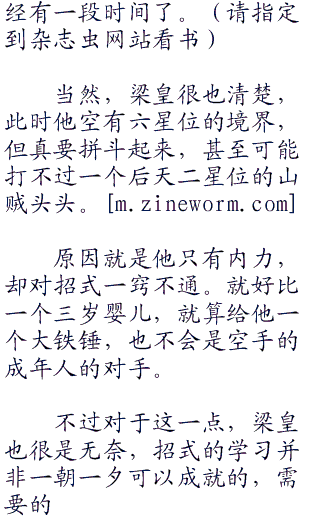 经有一段时间了。（请指定
到杂志虫网站看书）
当然，梁皇很也清楚，
此时他空有六星位的境界，
但真要拼斗起来，甚至可能
打不过一个后天二星位的山
贼头头。[m.zineworm.com]
原因就是他只有内力，
却对招式一窍不通。就好比
一个三岁婴儿，就算给他一
个大铁锤，也不会是空手的
成年人的对手。
不过对于这一点，梁皇
也很是无奈，招式的学习并
非一朝一夕可以成就的，需
要的